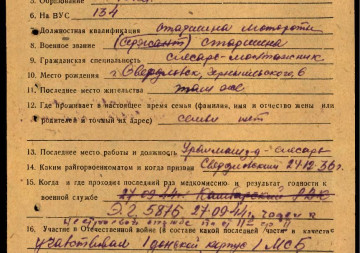 6. На ВУС 134
7. Должностная квалификация старшина мотороты
8. Военное звание (сержант) старшина
9. Гражданская специальность слесарь-монтажник
10. Место рождения г. Свердловск,
11. Последнее место жительства там же
12. Где проживает в настоящее время семья (фамилия, имя и отчество жены или
родителей и точный их адрес) семьи нет
13. Последнее место работы и должность слесарь
14. Каким райгорвоенкоматом и когда призван Свердловский 27.12.36 г.
15. Когда и где проходил последний раз медкомиссию и результат годности к
военной службе 27.09.44 г. РВК
Э.Г. 5875 27.09.44 г. годен к
16. Участие в Отечественной войне (в составе какой последней части и качестве
участвовал 1 донской корпус 1 МСБ